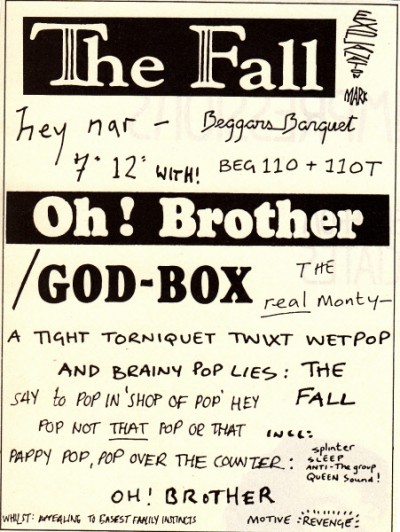 The Fall
MARK
hey nar - Beggars Banquet
7" 12" WITH! BEG 110 + 110T
Oh! Brother
/GOD-BOX
THE
real Monty-
A TIGHT TORNIQUET TWIXT WETPOP
AND BRAINY POP LIES: THE
FALL
SAY to POP IN 'SHOP OF POP' HEY
POP NOT THAT POP OR THAT
INCL:
PAPPY POP, POP OVER THE COUNTER:
splinter
SLEEP
ANTI-The group
QUEEN Sound!
OH! BROTHER
WHILST: APPEALING TO BASEST FAMILY INSTINCTS MOTIVE :REVENGE: